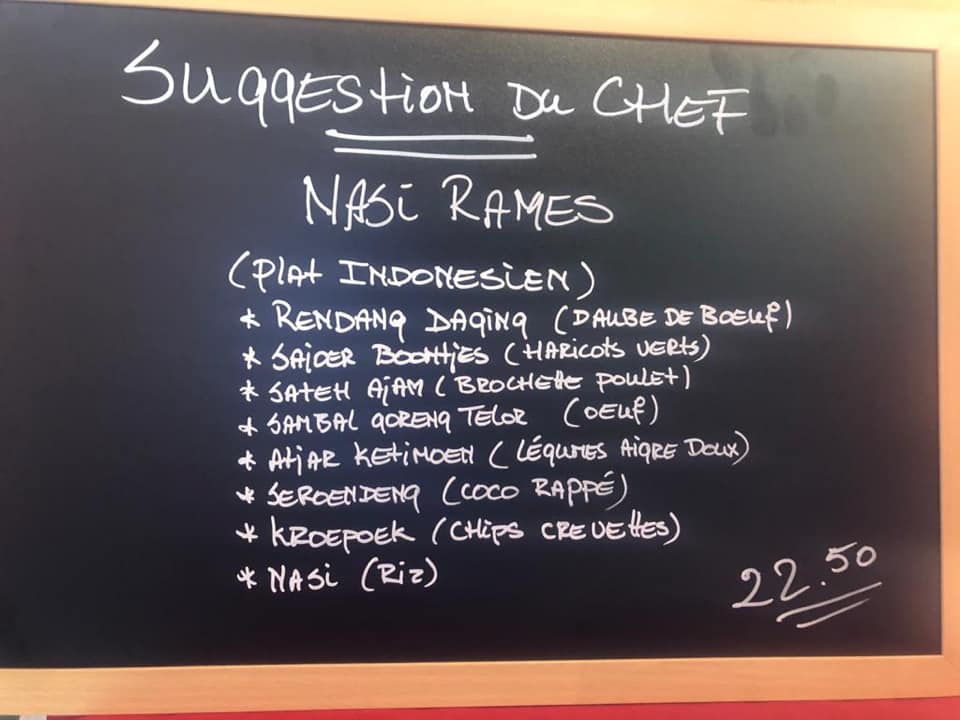 SUGGESTION DU CHEF
NASI RAMES
(PLAT INDONESIEN)
* RENDANG DAGING (DAUBE DE BOEUF)
* SAJOER BOONTJES (HARICOTS VERTS)
* SATEH AJAM (BROCHETTE POULET)
* SAMBAL GORENG TELOR (OEUF)
* ATJAR KETIMOEN (LÉGUMES AIGRE DOUX)
* SEROENDENG (COCO RAPPÉ)
* KROEPOEK (CHIPS CREVETTES)
* NASI (RIZ)
22.50